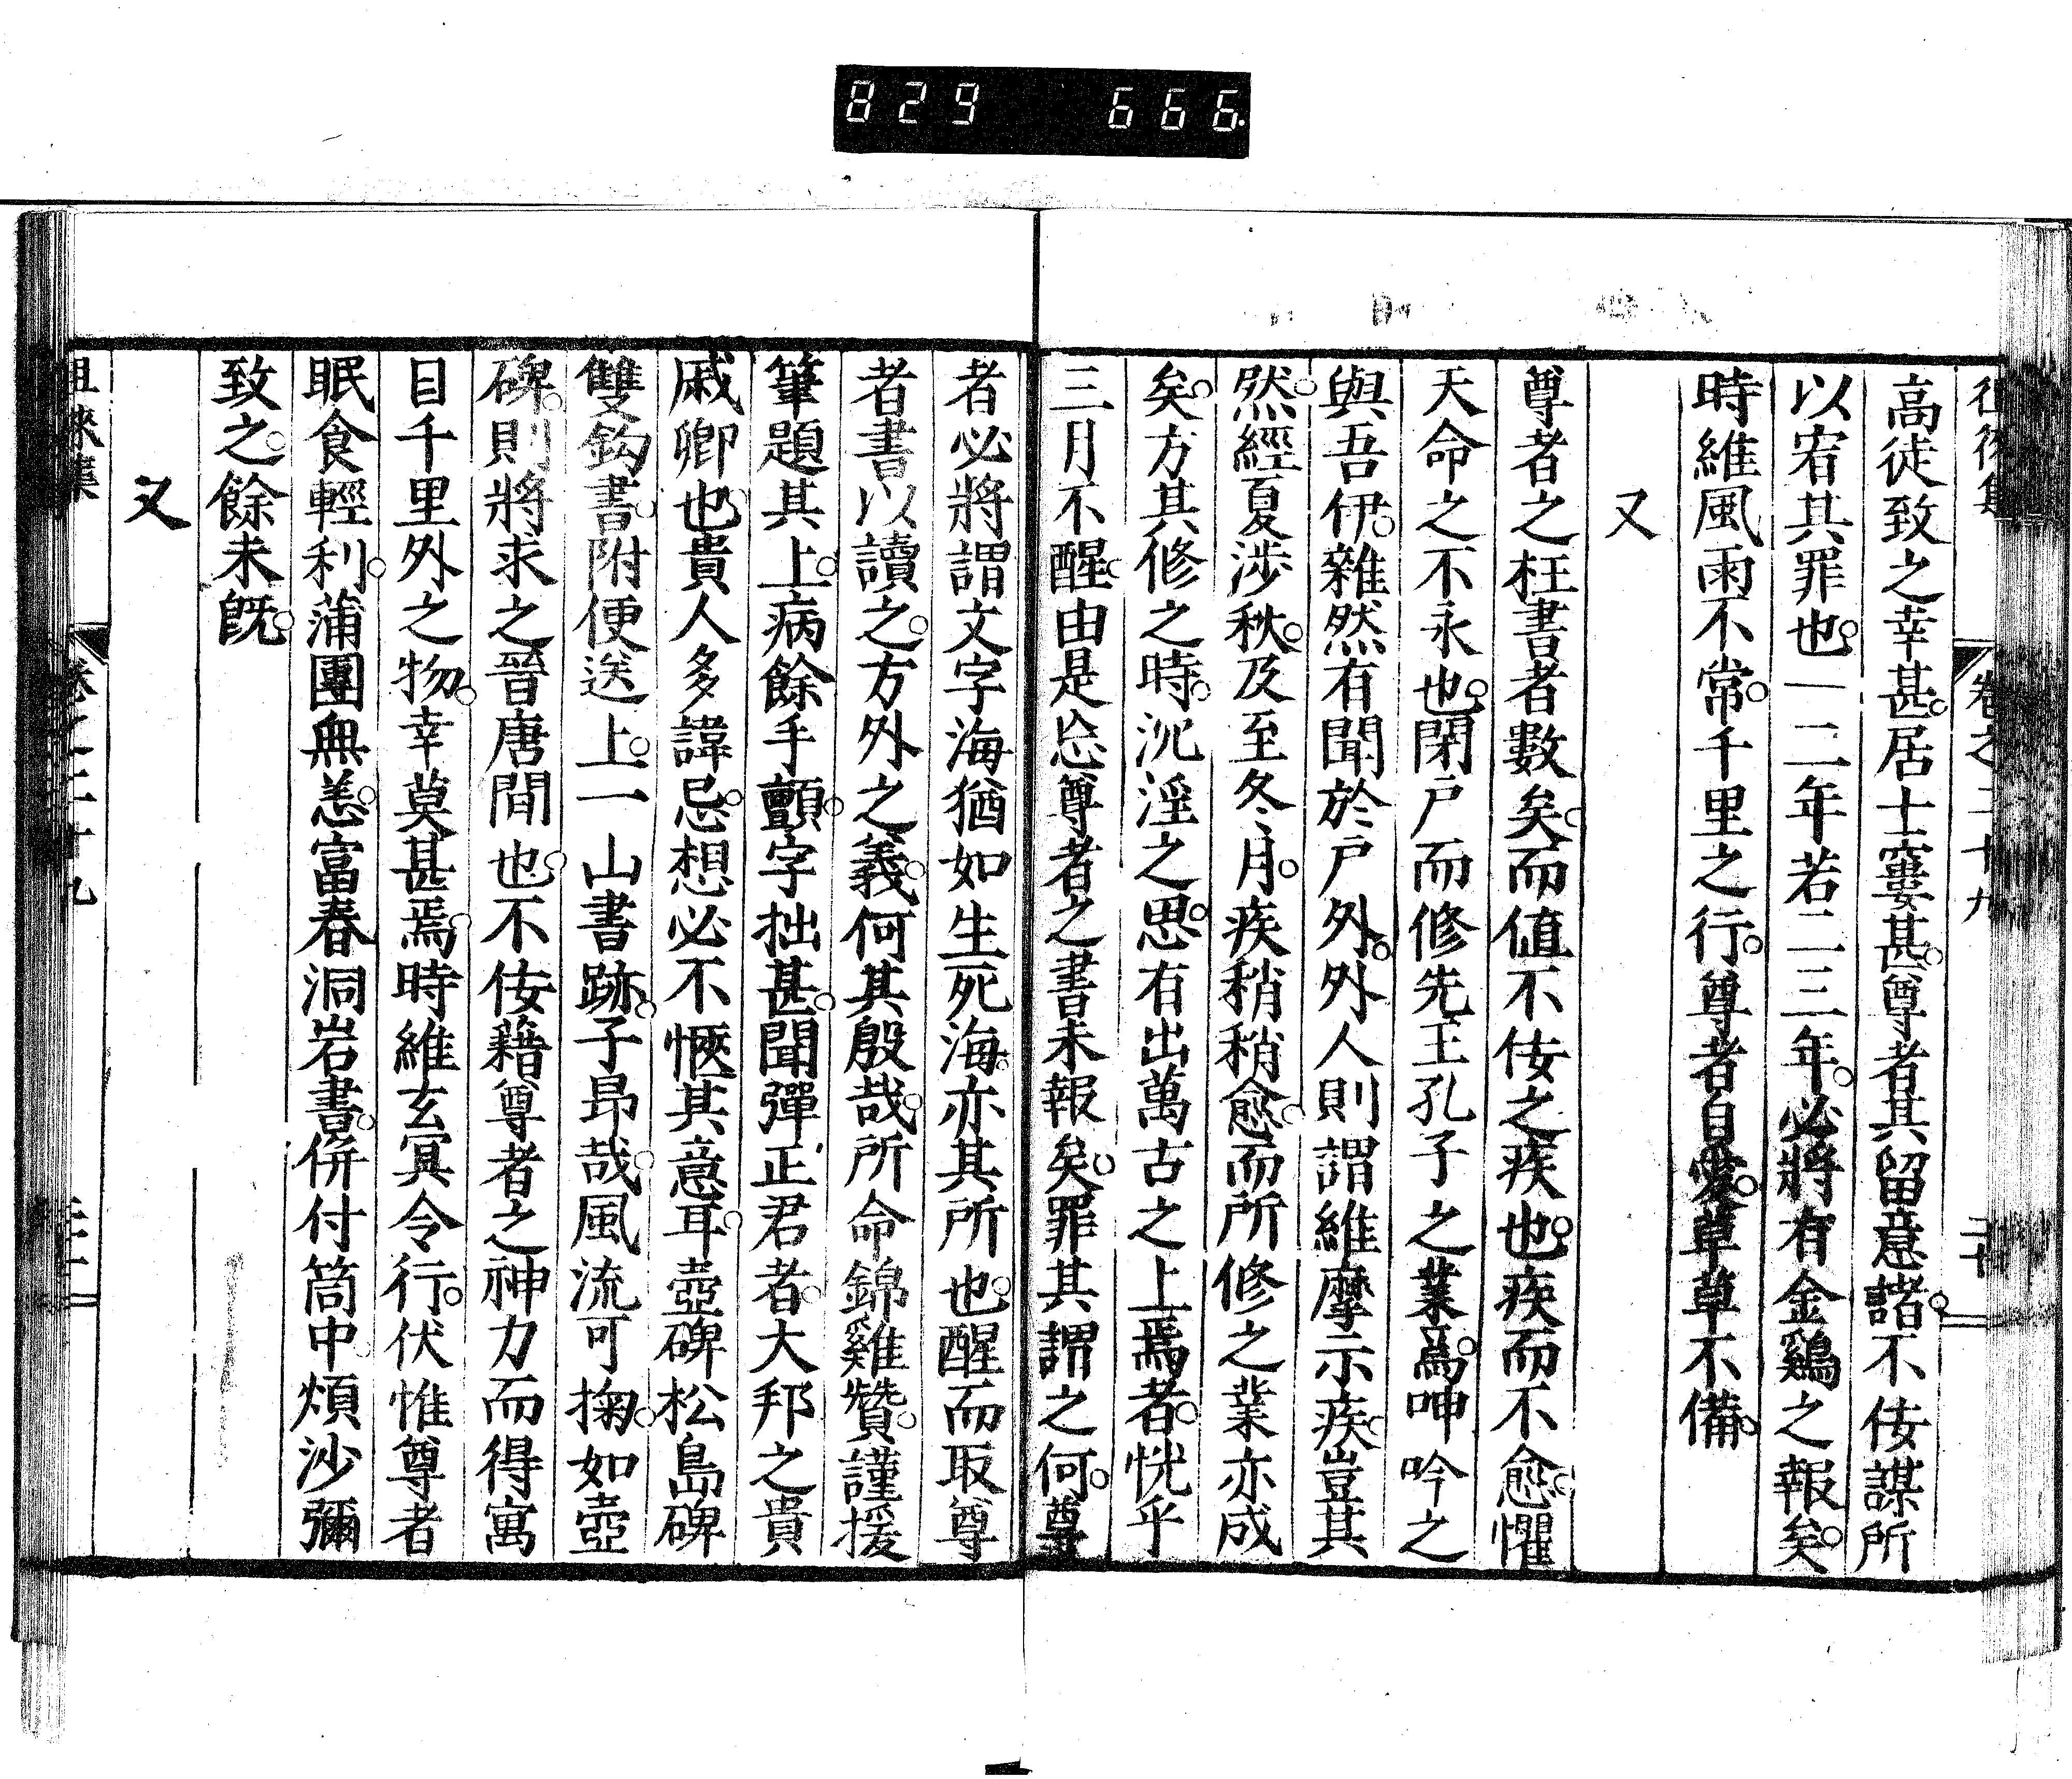 829 666
徂徠集 卷之二十九
高徒致之幸甚居士窶甚尊者其留意諸不佞謀所
以宥其罪也一二年若二三年必將有金鷄之報矣
時維風雨不常千里之行尊者自愛草草不備
又
尊者之枉書者數矣而値不佞之疾也疾而不愈懼
天命之不永也閉戶而修先王孔子之業爲呻吟之
與吾伊雜然有聞於戶外外人則謂維摩示疾豈其
然經夏涉秋及至冬月疾稍稍愈而所修之業亦成
矣方其修之時沉淫之思有出萬古之上焉者恍乎
三月不醒由是忩尊者之書未報矣罪其謂之何尊
者必將謂文字海猶如生死海亦其所也醒而取尊
者書以讀之方外之義何其殷哉所命錦雞贊謹援
筆題其上病餘手顫字拙甚聞彈正君者大邦之貴
戚卿也貴人多諱忌想必不愜其意耳壺碑松島碑
雙鈎書附便送上一山書跡子昂哉風流可掬如壺
碑則將求之晉唐間也不佞藉尊者之神力而得寓
目千里外之物幸莫甚焉時維玄冥令行伏惟尊者
眠食輕利蒲團無恙富春洞岩書併付筒中煩沙彌
致之餘未旣
又
徂徠集 卷之二十九